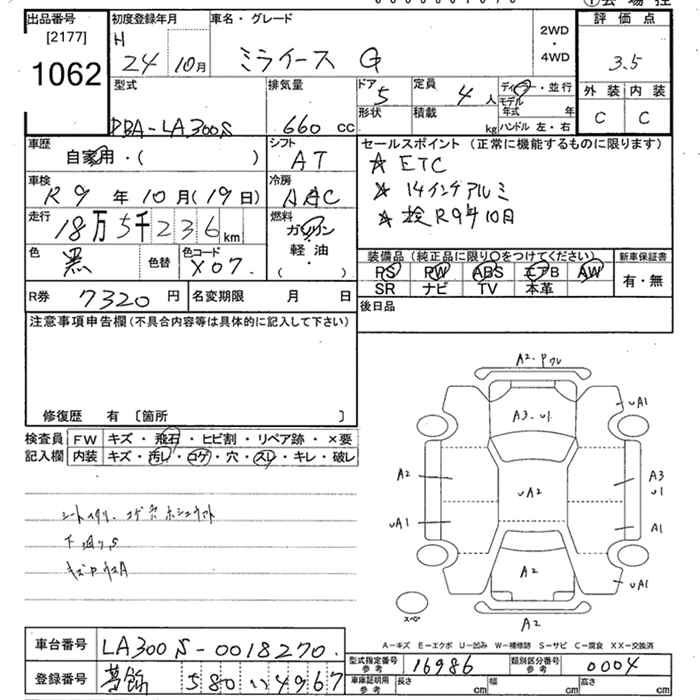 出品番号
[2177]
1062
初度登録年月
H
24 10月
車名・グレード
ミライース G
2WD
・
4WD
評価点
3.5
外装 内装
C C
型式
DBA-LA300S
排気量
660 cc
ドア
5
形状
定員
4 人
積載
kg
ディーラー・並行
モデル年式 年
ハンドル 左・右
車歴
自家用・( )
シフト
AT
車検
R9年10月(19日)
冷房
AAC
走行
18万5千236km
燃料
ガソリン
軽油
( )
色
黒
色替
色コード
X07
R券 7320円
名変期限 月 日
セールスポイント (正常に機能するものに限ります)
☆ ETC
☆ 14インチアルミ
☆ 検R9年10月
装備品 (純正品に限り○をつけてください)
PS PW ABS エアB AW
SR ナビ TV 本革
新車保証書
有・無
後日品
注意事項申告欄(不具合内容等は具体的に記入して下さい)
修復歴 有 〔箇所 〕
検査員 FW キズ・飛石・ヒビ割・リペア跡・×要
記入欄 内装 キズ・汚レ・コゲ・穴・スレ・キレ・破レ
下廻りS
A2・Pワレ
A3・U1
UA1
A2
UA2
A3
U1
UA1
A1
A2
UA1
スペア
A2
A-キズ E-エクボ U-凹み W-補修跡 S-サビ C-腐食 XX-交換済
車台番号 LA300S-0018270
型式指定番号 参考 16986
類別区分番号 参考 0004
登録番号 葛飾 580 い 4967
車庫証明用 参考 長さ cm 幅 cm 高さ cm